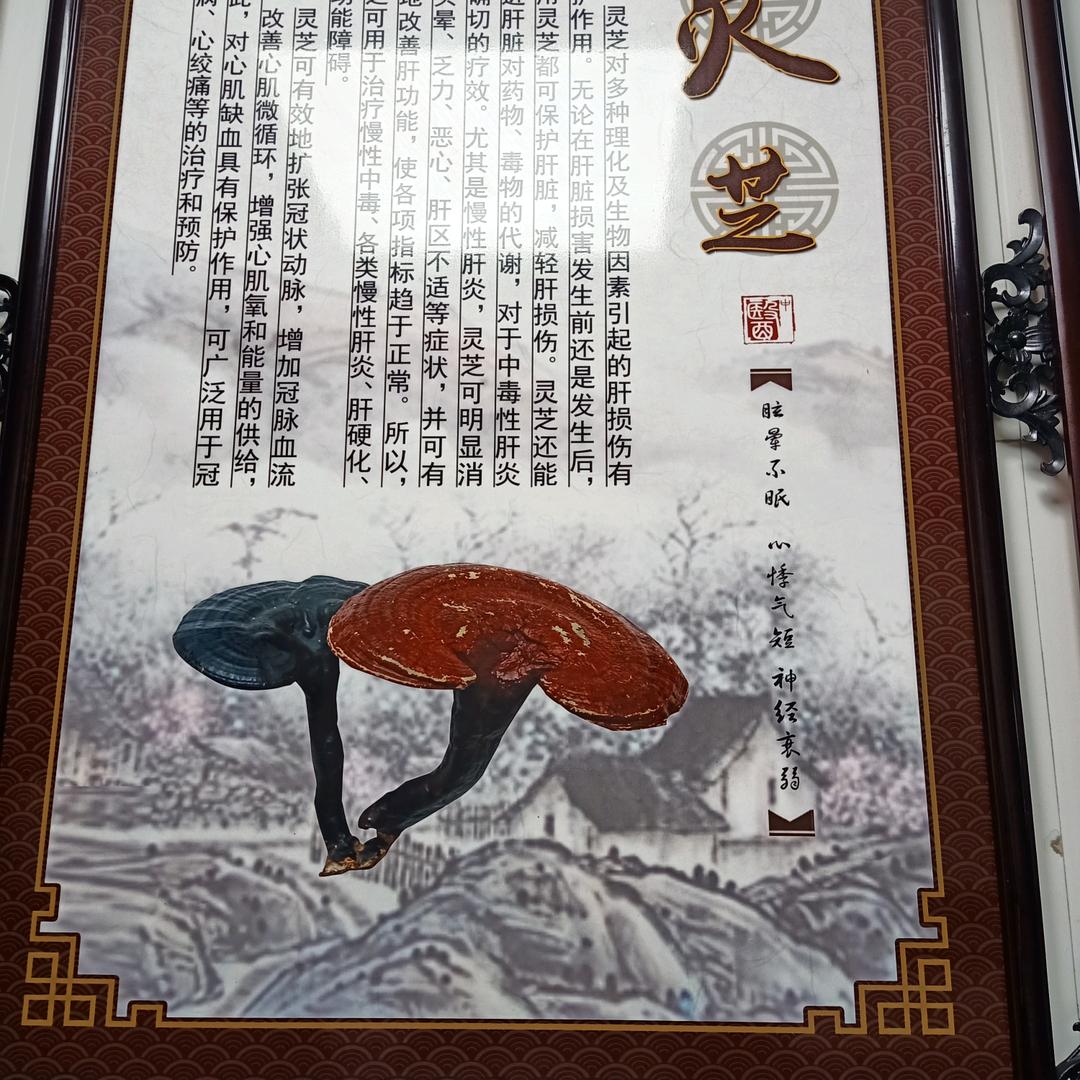 灵芝
中醫
眩晕不眠 心悸气短 神经衰弱
灵芝对多种理化及生物因素引起的肝损伤有
护作用。无论在肝脏损害发生前还是发生后，
用灵芝都可保护肝脏，减轻肝损伤。灵芝还能
进肝脏对药物、毒物的代谢，对于中毒性肝炎
确切的疗效。尤其是慢性肝炎，灵芝可明显消
头晕、乏力、恶心、肝区不适等症状，并可有
地改善肝功能，使各项指标趋于正常。所以，
芝可用于治疗慢性中毒、各类慢性肝炎、肝硬化、
功能障碍。
灵芝可有效地扩张冠状动脉，增加冠脉血流
改善心肌微循环，增强心肌氧和能量的供给，
此，对心肌缺血具有保护作用，可广泛用于冠
病、心绞痛等的治疗和预防。